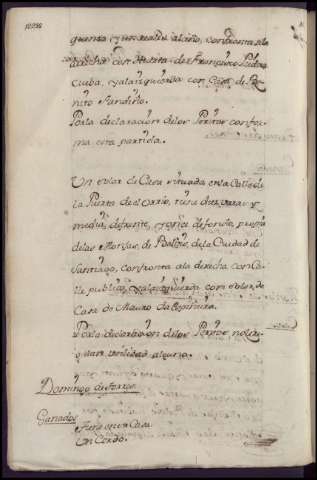 quenta y un reales al año, confronta a la
derecha con Huerta de Francisco
Cuba, y a la izquierda con Casa de Be-
nito Fundiño.
Por la declaracion de los Peritos confor-
ma esta partida.
Un solar de Casa situada en la Calle de
la Puerta de el Orrio, tiene diez varas y
media, de frente, y onze de fondo, propia
de las Monjas, de Belbis, de la Ciudad de
Santiago, confronta a la derecha con Ca-
lle publica, y a la izquierda con solar, de
Casa de Mauro da Espiñeira.
Por la declaracion de los Peritos no lexi-
tima utilidad alguna.
Domingo de
Ganados
Tiene en su Casa
Un Cerdo.